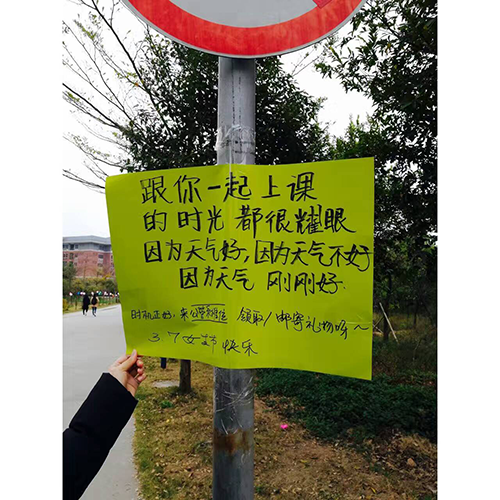 跟你一起上课
的时光都很耀眼
因为天气好,因为天气不好
因为天气 刚刚好.
时机正好,来 领取/邮寄礼物哆~
3.7女节快乐